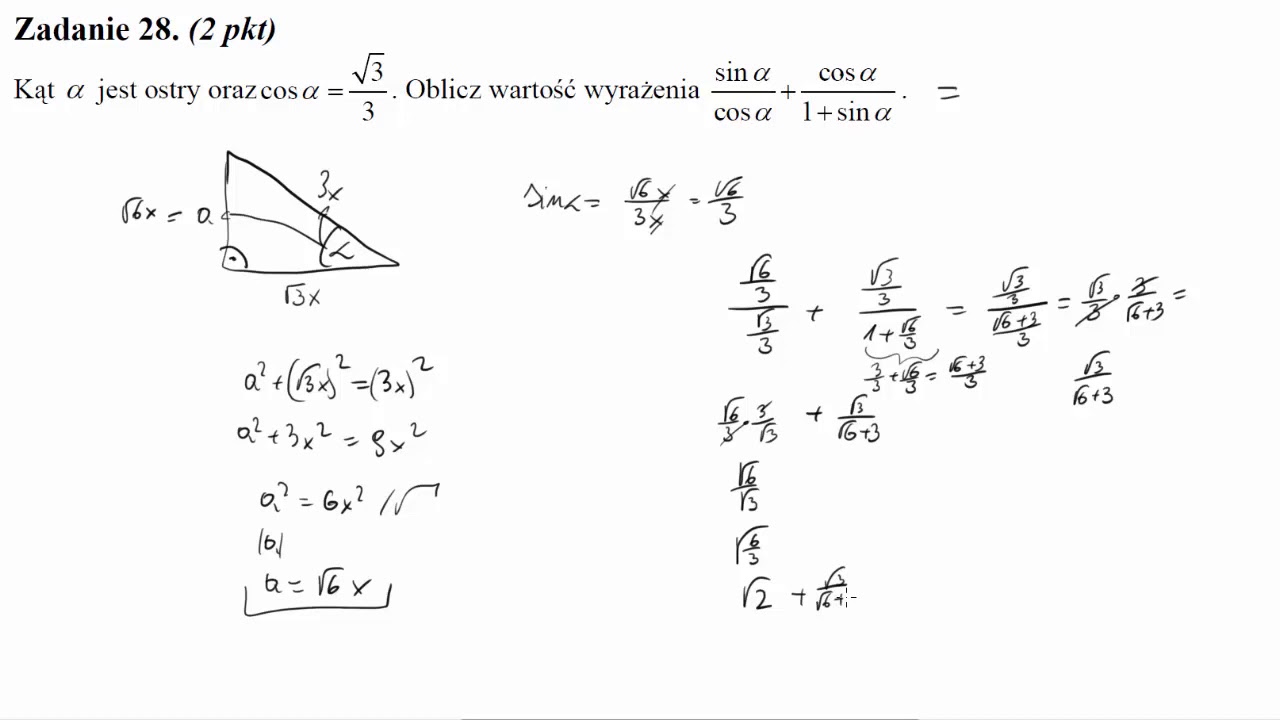 Zadanie 28. (2 pkt)
Kąt α jest ostry oraz cos α = √3/3 . Oblicz wartość wyrażenia sin α/cos α + cos α/(1 + sin α) . =
3x
√6x = a
α
√3x
sin α = √6x/3x = √6/3
(√6/3)/(√3/3) + (√3/3)/(1 + √6/3) = (√3/3)/((√6+3)/3) = √3/3 · 3/(√6+3) =
3/3 + √6/3 = (√6+3)/3
√3/(√6+3)
a² + (√3x)² = (3x)²
√6/3 · 3/√3 + √3/(√6+3)
a² + 3x² = 9x²
√6/√3
a² = 6x² /√
|a|
√(6/3)
a = √6 x
√2 + √3/(√6+